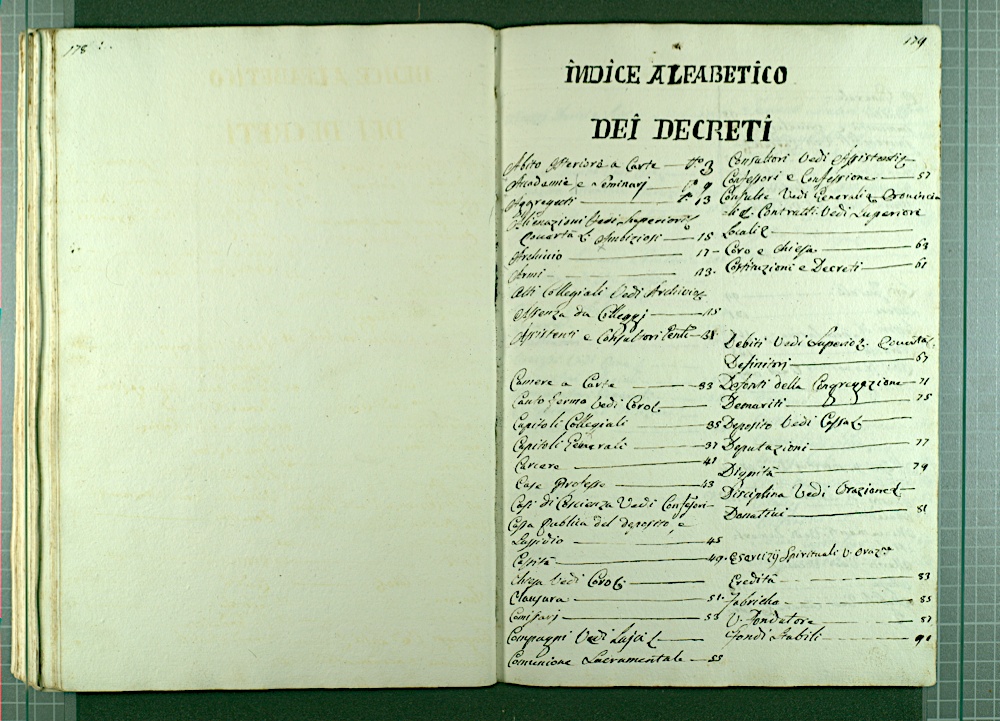 178
179
INDICE ALFABETICO
DEI DECRETI
Abito Esteriore a Carte 3
Academie e Seminarj 9
Aggregati 13
Alienazioni Vedi Superiore
Povertà Ambiziosi 15
Archivio 17
Armi 13
Atti Collegiali Vedi Archivio
Assenza da Collegj 15
Assistenti e Consultori 31
Camere a Carte 33
Canto fermo Vedi Coro
Capitoli Collegiali 35
Capitoli Generali 37
Carcere 41
Case Professe 43
Casi di Coscienza Vedi Confessori
Cassa publica del deposito, e
Sussidio 45
Castità 49
Chiesa Vedi Coro
Clausura 51
Comissarj 53
Compagni Vedi
Comunione Sacramentale 55
Consultori Vedi Assistenti
Confessori e Confessione 57
Consulte Vedi Generali Provincia
li Contratti Vedi Superiore
Locali
Coro e Chiesa 63
Costituzioni e Decreti 61
Debiti Vedi Superiore Povertà
Definitori 67
Defonti della Congregazione 71
Demeriti 75
Deposito Vedi Cassa
Deputazioni 77
Dignità 79
Disciplina Vedi Orazione
Donativi 81
Esercizij Spirituali V. Oraz.ne
Eredità 83
Fabriche 85
V. Fondatore 87
Fondi Stabili 91